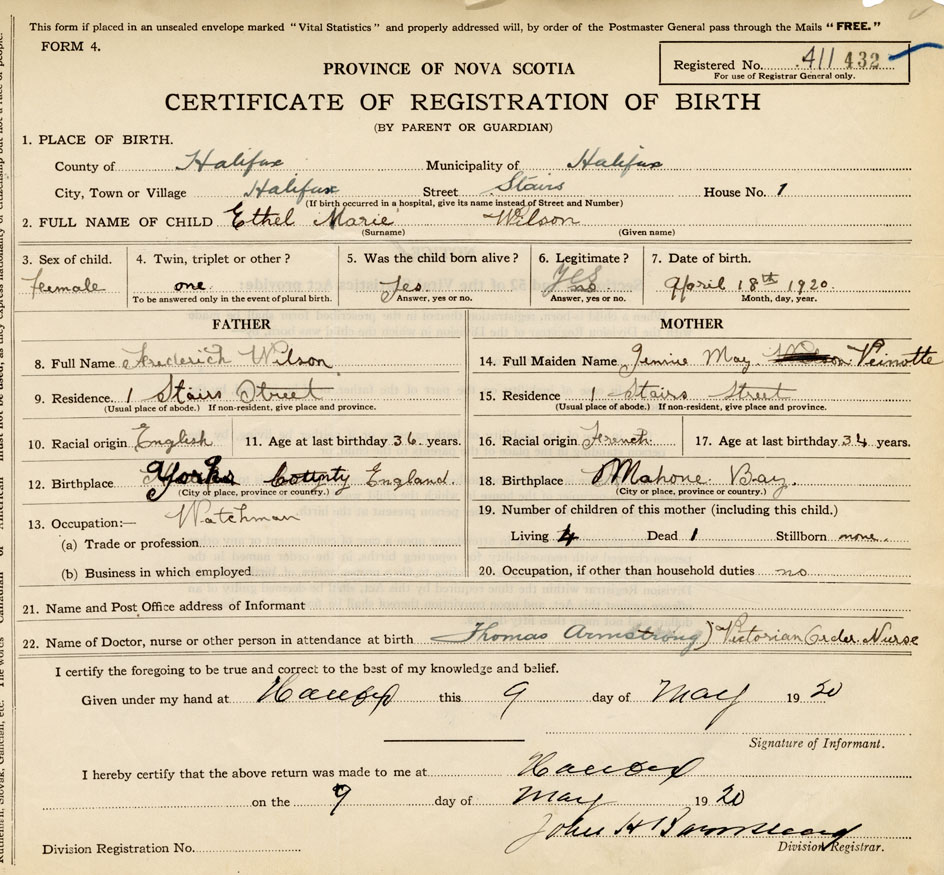 This form if placed in an unsealed envelope marked "Vital Statistics" and properly addressed will, by order of the Postmaster General pass through the Mails "FREE."
FORM 4.
Registered No. 411 432
For use of Registrar General only.
PROVINCE OF NOVA SCOTIA
CERTIFICATE OF REGISTRATION OF BIRTH
(BY PARENT OR GUARDIAN)
1. PLACE OF BIRTH.
County of Halifax Municipality of Halifax
City, Town or Village Halifax Street Stairs House No. 1
(If birth occurred in a hospital, give its name instead of Street and Number)
2. FULL NAME OF CHILD Ethel Marie Wilson
(Surname) (Given name)
3. Sex of child. 4. Twin, triplet or other? 5. Was the child born alive? 6. Legitimate? 7. Date of birth.
Female one. Yes. Yes April 18th 1920.
To be answered only in the event of plural birth. Answer, yes or no. Answer, yes or no. Month, day, year.
FATHER MOTHER
8. Full Name Frederich Wilson 14. Full Maiden Name Jennie May Veinotte
9. Residence. 1 Stairs Street 15. Residence 1 Stairs Street
(Usual place of abode.) If non-resident, give place and province. (Usual place of abode.) If non-resident, give place and province.
10. Racial origin English 11. Age at last birthday 36. years. 16. Racial origin French. 17. Age at last birthday 34 years.
12. Birthplace Yorks County England. 18. Birthplace Mahone Bay.
(City or place, province or country.) (City or place, province or country.)
13. Occupation:— Watchman 19. Number of children of this mother (including this child.)
(a) Trade or profession Living 4 Dead 1 Stillborn none.
(b) Business in which employed 20. Occupation, if other than household duties no
21. Name and Post Office address of Informant
22. Name of Doctor, nurse or other person in attendance at birth Thomas Armstrong) Victorian Order Nurse
I certify the foregoing to be true and correct to the best of my knowledge and belief.
Given under my hand at Halifax this 9 day of May 1920
Signature of Informant.
I hereby certify that the above return was made to me at Halifax
on the 9 day of May 1920
John H
Division Registration No. Division Registrar.